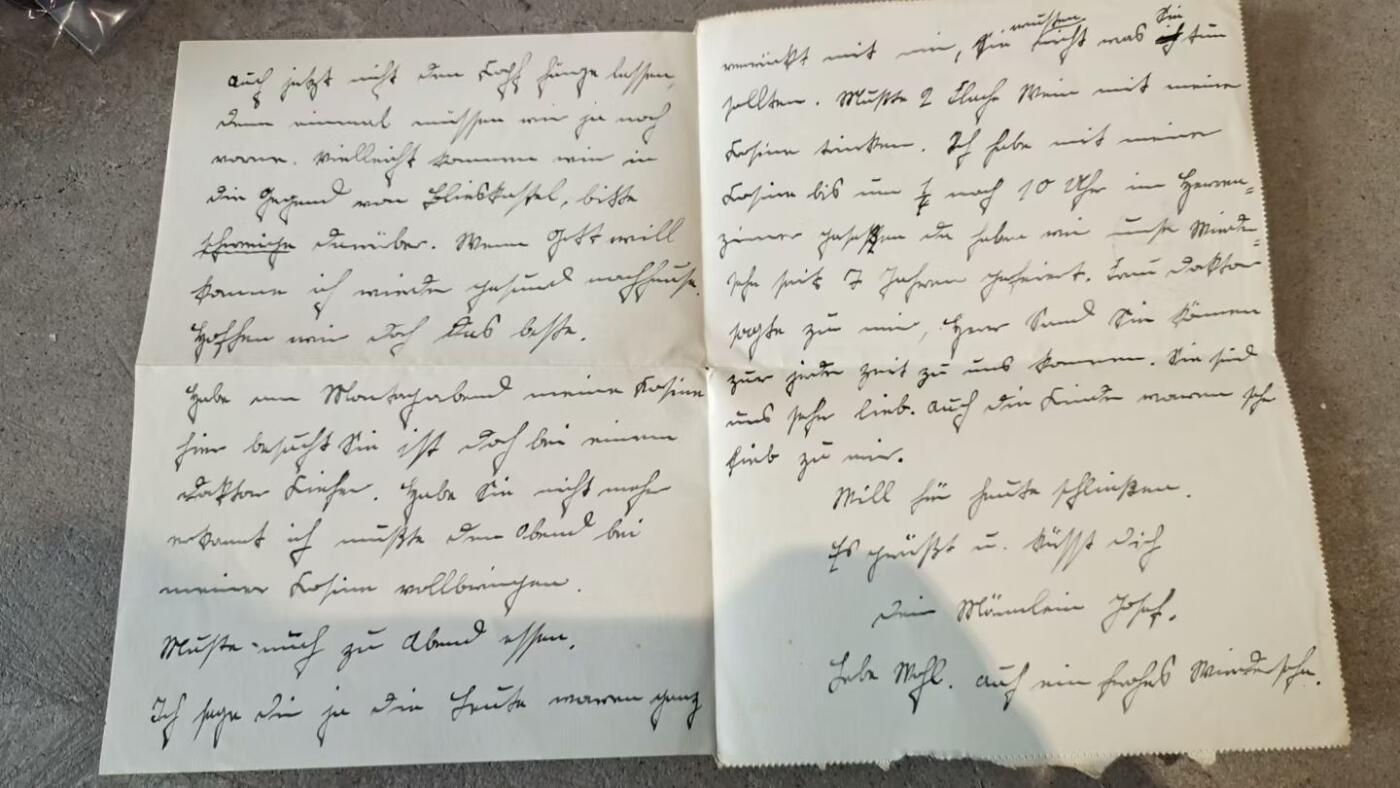 auch jetzt nicht den Kopf hänge lassen,
denn einmal müssen wir ja noch
vorne. Vielleicht kommen wir in
die Gegend von Blieskastel, bitte
schweige darüber. Wenn Gott will
komme ich wieder gesund nachhause.
Hoffen wir doch das beste.
Habe am Montagabend meine Kosine
hier besucht Sie ist doch bei einem
Doktor Kiefer. Habe Sie nicht mehr
erkannt ich mußte den Abend bei
meiner Kosine vollbringen.
Mußte auch zu Abend essen.
Ich sage dir ja die Leute waren ganz
verrückt mit mir, Sie wußten nicht was Sie tun
sollten. Mußte 2 Flache Wein mit meine
Kosine trinken. Ich habe mit meiner
Kosine bis um nach 10 Uhr im Herren=
zimmer gesessen da haben wir unse Wieder=
sehn seit 7 Jahren gefeiert. Frau Doktor
sagte zu mir, Herr Sand Sie können
zur jeder Zeit zu uns kommen. Sie sind
uns sehr lieb. Auch die Kinder waren sehr
lieb zu mir.
Will für heute schließen.
Es grüßt u. küsst dich
dein Männlein Josef.
Lebe Wohl. Auf ein frohes Wiedersehn.